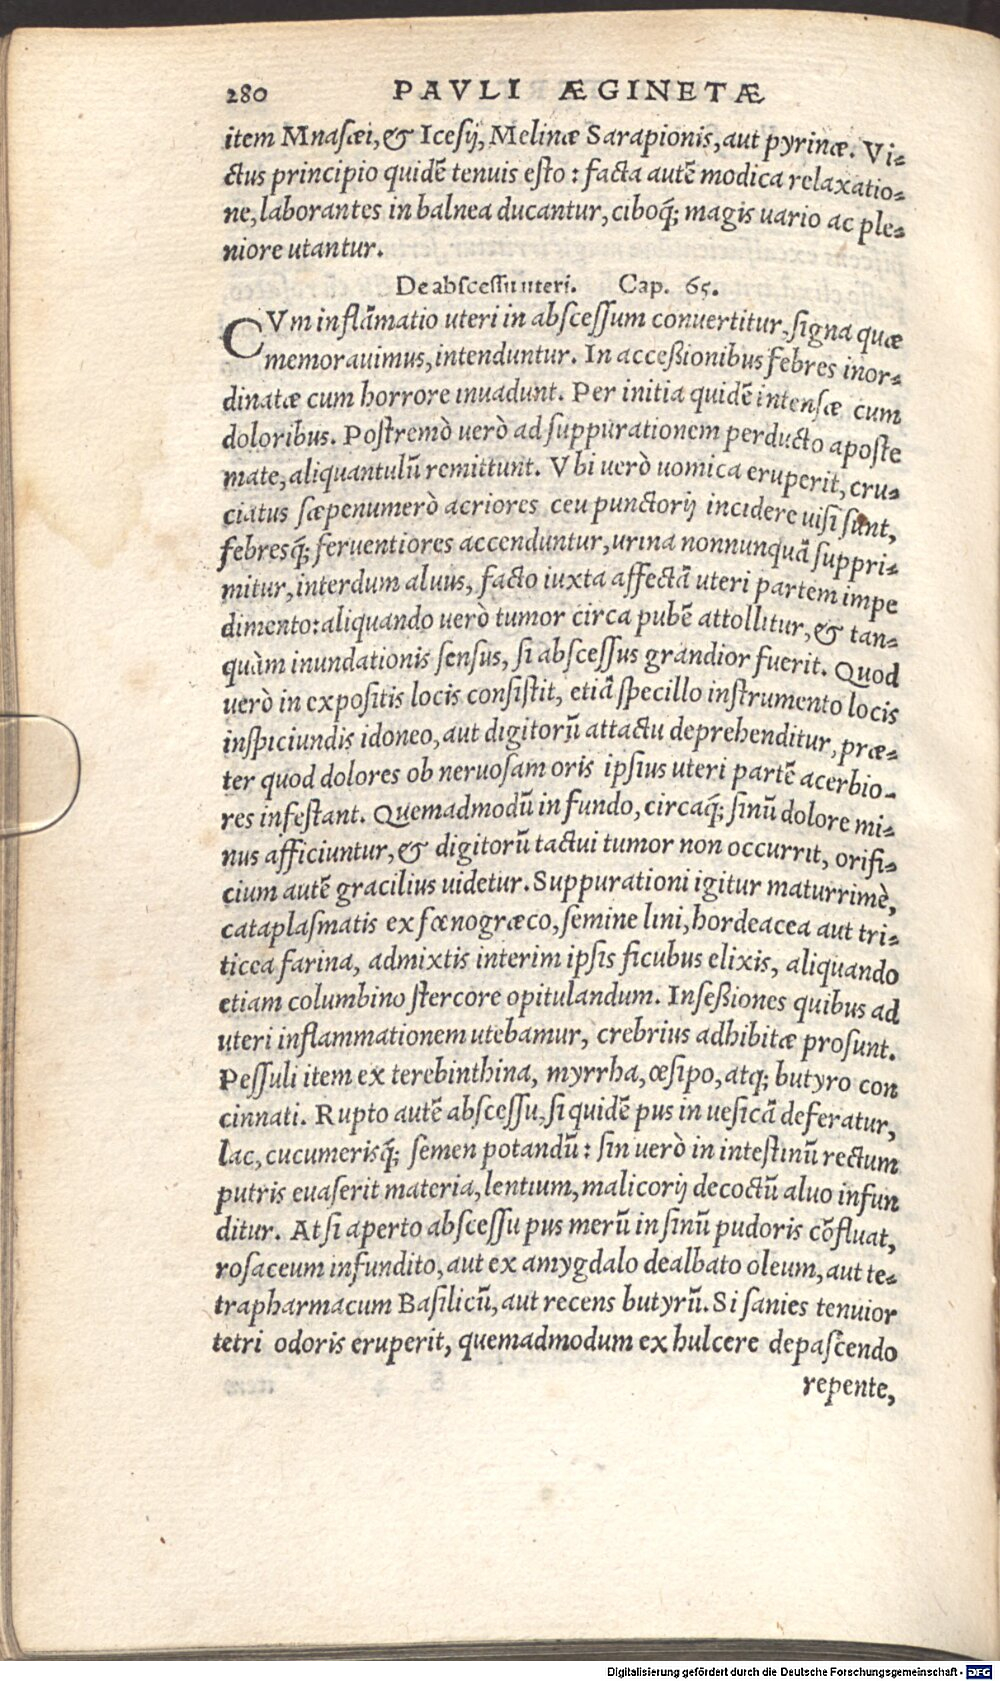 280 PAVLI ÆGINETÆ
item Mnasæi, & Icesij, Melinæ Sarapionis, aut pyrinæ. Vi-
ctus principio quidẽ tenuis esto : facta autẽ modica relaxatio-
ne, laborantes in balnea ducantur, ciboq́; magis uario ac ple-
niore utantur.
De abscessu uteri. Cap. 65.
CVm inflãmatio uteri in abscessum conuertitur, signa quæ
memorauimus, intenduntur. In accessionibus febres inor-
dinatæ cum horrore inuadunt. Per initia quidẽ intensæ cum
doloribus. Postremò uerò ad suppurationem perducto aposte
mate, aliquantulũ remittunt. Vbi uerò uomica eruperit, cru-
ciatus sæpenumerò acriores ceu punctorij incidere uisi sunt,
febresq́; feruentiores accenduntur, urina nonnunquã suppri-
mitur, interdum aluus, facto iuxta affectã uteri partem impe
dimento: aliquando uerò tumor circa pubẽ attollitur, & tan-
quàm inundationis sensus, si abscessus grandior fuerit. Quod
uerò in expositis locis consistit, etiã specillo instrumento locis
inspiciundis idoneo, aut digitorũ attactu deprehenditur, præ-
ter quod dolores ob neruosam oris ipsius uteri partẽ acerbio-
res infestant. Quemadmodũ in fundo, circaq́; sinũ dolore mi-
nus afficiuntur, & digitorũ tactui tumor non occurrit, orifi-
cium autẽ gracilius uidetur. Suppurationi igitur maturrimè,
cataplasmatis ex fœnogræco, semine lini, hordeacea aut tri-
ticea farina, admixtis interim ipsis ficubus elixis, aliquando
etiam columbino stercore opitulandum. Insessiones quibus ad
uteri inflammationem utebamur, crebrius adhibitæ prosunt.
Pessuli item ex terebinthina, myrrha, œsipo, atq; butyro con
cinnati. Rupto autẽ abscessu, si quidẽ pus in uesicã deferatur,
lac, cucumerisq́; semen potandũ : sin uerò in intestinũ rectum
putris euaserit materia, lentium, malicorij decoctũ aluo infun
ditur. At si aperto abscessu pus merũ in sinũ pudoris cõfluat,
rosaceum infundito, aut ex amygdalo dealbato oleum, aut te-
trapharmacum Basilicũ, aut recens butyrũ. Si sanies tenuior
tetri odoris eruperit, quemadmodum ex hulcere depascendo
repente,
Digitalisierung gefördert durch die Deutsche Forschungsgemeinschaft - DFG